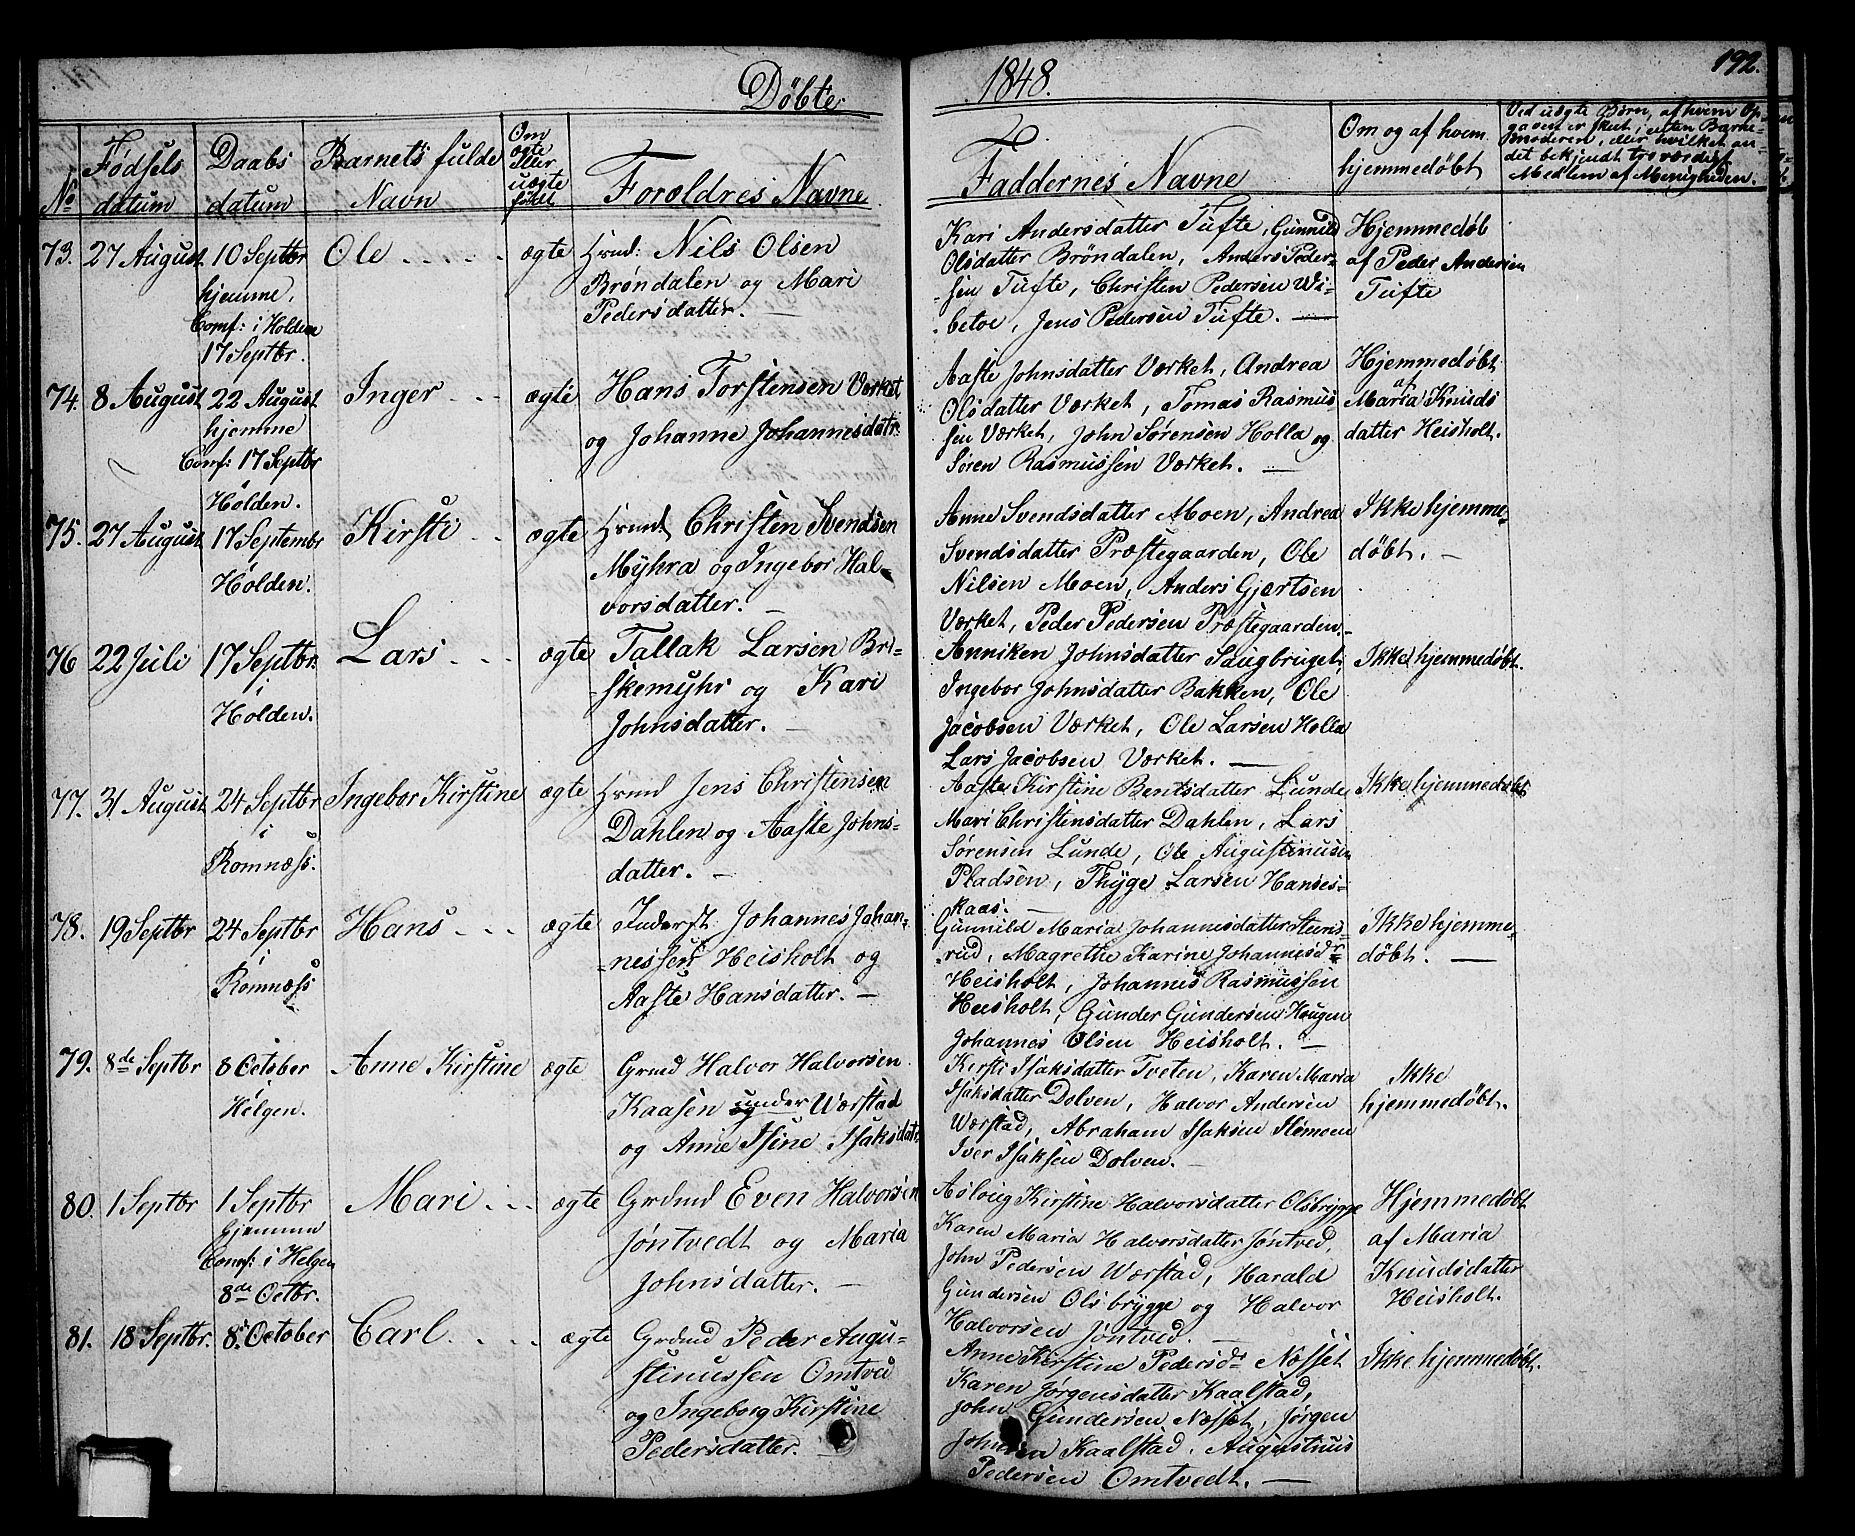 192.
Døbte
1848.
No
Fødsels
datum
Daabs
datum
Barnets fulde
Navn
Om
ægte
eller
uægte
født
Forældres Navne
Faddernes Navne
Om og af hvem
hjemmedøbt
Ved uægte Børn, af hvem Op-
gaven er skeet, enten Barne-
moderen, eller hvilket an-
det bekjendt troværdigt
Medlem af Menigheden.
73.
27 August
10 Septbr
hjemme,
Comf: i Holden
17 Septbr.
Ole
ægte
Hmd: Nils Olsen
Brøndalen og Mari
Pedersdatter. —
Kari Andersdatter Tufte, Gunnild
Olsdatter Brøndalen, Anders Peder-
sen Tufte, Christen Pedersen Wi-
betoe, Jens Pedersen Tufte. —
Hjemmedøb
af Peder Andersen
Tufte
74.
8 August
22 August
hjemme
Comf: 17 Septbr
i
Holden.
Inger
ægte
Hans Torstensen Værket
og Johanne Johannesdatr.
Aaste Johnsdatter Værket, Andrea
Olsdatter Værket, Tomas Rasmus-
sen Værket, John Sørensen Holla og
Søren Rasmussen Værket. —
Hjemmedøbt
af
Maria Knuds
datter Heisholt.
75.
27 August
17 Septembr
i
Holden.
Kirsti
ægte
Hmd Christen Svendsen
Myhra og Ingebor Hal-
vorsdatter. —
Anne Svendsdatter Moen, Andrea
Svendsdatter Præstegaarden, Ole
Nilsen Moen, Anders Gjærtsen
Værket, Peder Pedersen Præstegaarden.
Ikke hjemme-
døbt. —
76
22 Juli
17 Septbr.
i
Holden.
Lars
ægte
Tallak Larsen Bri-
skemyhr og Kari
Johnsdatter. —
Anniken Johnsdatter Saugbruget,
Ingebor Johnsdatter Bakken, Ole
Jacobsen Værket, Ole Larsen Holla
Lars Jacobsen Værket. —
Ikke hjemmedøbt.
77.
31 August
24 Septbr
i
Romnæss.
Ingebor Kirstine
ægte
Hmd Jens Christensen
Dahlen og Aaste Johns-
datter. —
Aaste Kirstine Bentsdatter Lunde
Mari Christensdatter Dahlen, Lars
Sørensen Lunde, Ole Augustinusen
Pladsen, Thyge Larsen Hanses-
kaas. —
Ikke hjemmedøbt
78.
19 Septbr
24 Septbr
i
Romnæss
Hans
ægte
Inderst Johannes Johan-
nessen Heisholt og
Aaste Hansdatter. —
Gunnild Maria Johannesdatter Steins-
rud, Magrethe Karine Johannesdr
Heisholt, Johannes Rasmussen
Heisholt, Gunder Gundersen Haugen
Johannes Olsen Heisholt. —
Ikke hjemme-
døbt. —
79.
8de Septbr
8 October
i
Helgen.
Anne Kirstine
ægte
Grmd Halvor Halvorsen
Kaasen under Wærstad
og Anne Isine Isaksdatr
Kirsti Isaksdatter Tveten, Karen Maria
Isaksdatter Dolven, Halvor Andersen
Wærstad, Abraham Isaksen Slemoen
Iver Isaksen Dolven. —
Ikke
hjemmedøbt.
80.
1 Septbr
1 Septbr
hjemme
Comf: i Helgen
8de Octbr.
Mari
ægte
Grdmd Even Halvorsen
Jøntvedt og Maria
Johnsdatter. —
Asloug Kirstine Halvorsdatter Olsbrygge
Karen Maria Halvorsdatter Jøntved,
John Pedersen Wærstad, Harald
Gundersen Olsbrygge og Halvor
Halvorsen Jøntved. —
Hjemmedøbt
af Maria
Knudsdatter
Heisholt.
81.
18 Septbr.
8. October
Carl.
ægte
Grdmd Peder Augu-
stinussen Omtved
og Ingeborg Kirstine
Pedersdatter. —
Anne Kirstine Pedersdr Næsset
Karen Jørgensdatter Kaalstad,
John Gundersen Næsset, Jørgen
Kaalstad, Augustinus
Pedersen Omtvedt. —
Ikke hjemmedøbt.